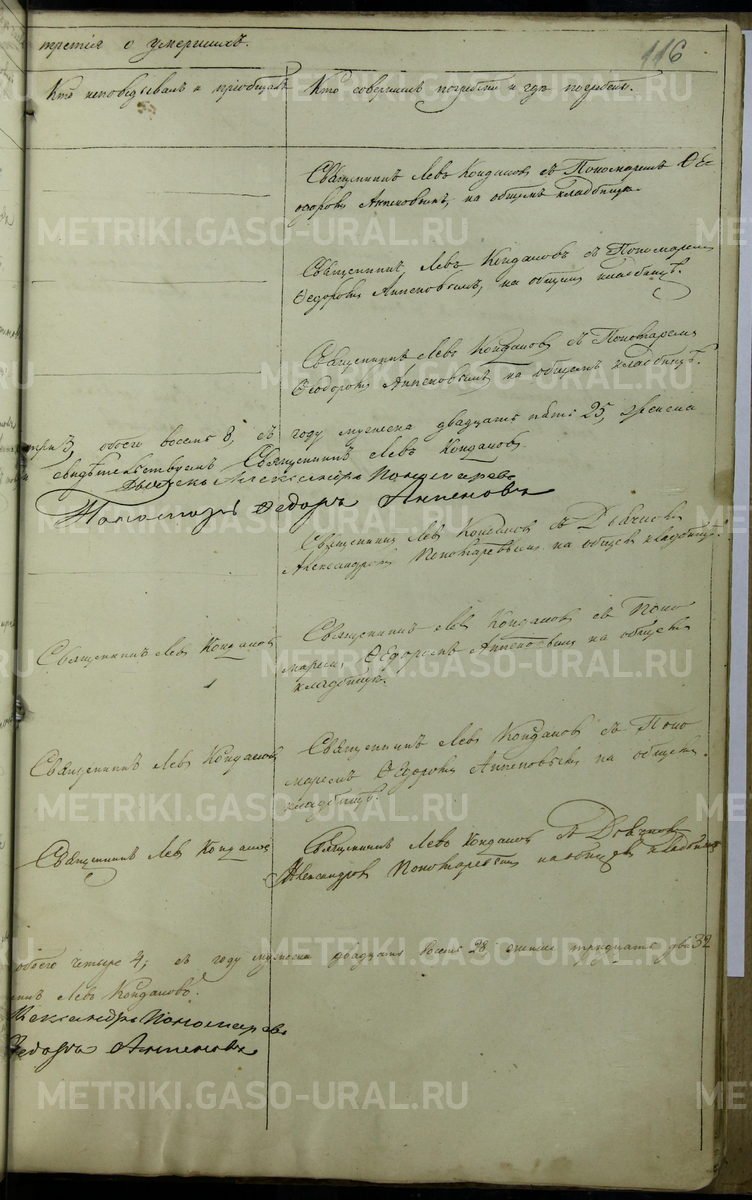 третія о умершихъ.
116
Кто исповѣдывалъ и пріобщалъ
Кто совершилъ погребеніе и гдѣ погребены.
Священникъ Левъ Кондаковъ съ Пономаремъ Ѳе-
одоромъ Аппеновымъ, на общемъ кладбищѣ.
Священникъ Левъ Кондаковъ съ Пономаремъ
Ѳедоромъ Аппеновымъ, на общемъ кладбищѣ.
Священникъ Левъ Кондаковъ съ Пономаремъ
Ѳеодоромъ Аппеновымъ на общемъ кладбищѣ.
три 3, обоего восемь 8, съ году мужеска двадцать пять 25, женска
свидѣтельствуемъ Священникъ Левъ Кондаковъ
Александръ Пономаревъ
Пономарь Ѳедоръ Аппеновъ
Священникъ Левъ Кондаковъ съ Дьячкомъ
Александромъ Пономаревымъ на общемъ кладбищѣ.
Священникъ Левъ Кондаковъ
Священникъ Левъ Кондаковъ съ Поно
маремъ Ѳедоромъ Аппеновымъ на общемъ
кладбищѣ.
Священникъ Левъ Кондаковъ
Священникъ Левъ Кондаковъ съ Поно
маремъ Ѳедоромъ Аппеновымъ на общемъ
кладбищѣ.
Священникъ Левъ Кондаковъ
Священникъ Левъ Кондаковъ съ Дьячкомъ
Александромъ Пономаревымъ на общемъ кладбищѣ
обоего четыре 4; съ году мужеска двадцать восемь 28 женска тридцать два 32
Левъ Кондаковъ.
Александръ Пономаревъ
Ѳедоръ Аппеновъ
METRIKI.GASO-URAL.RU